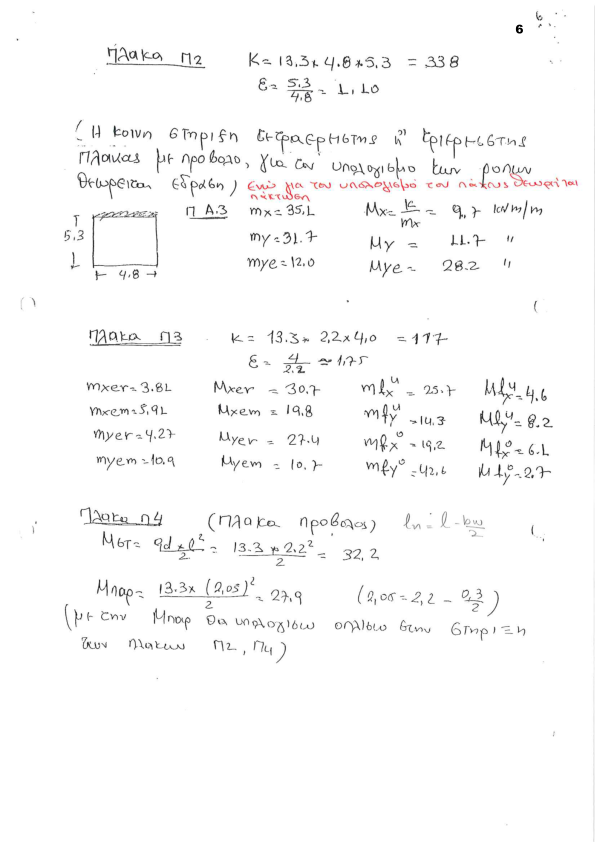 6
6
Πλακα Π2 K = 13.3 * 4.8 * 5.3 = 338
ε = 5.3/4.8 = 1,10
(Η κοινη στηριξη τετραεριστης η" τριεριστης
πλακας με προβολο, για τον υπολογισμο των ροπων
θεωρειται εδραση) ενώ για τον υπολογισμό του πάχους θεωρείται
πάκτωση
Π Α.3 mx = 35.1 Mx = K/mx = 9,7 kNm/m
5.3 my = 31.7 My = 11.7 "
4.8 mye = 12.0 Mye = 28.2 "
Πλακα Π3 K = 13.3 * 2,2 x 4,0 = 117
ε = 4/2.2 ≈ 1,75
mxer = 3.81 Mxer = 30.7 mfx^u = 25.7 Mfx^u = 4.6
mxem = 5,91 Mxem = 19.8 mfy^u = 14.3 Mfy^u = 8.2
myer = 4.27 Myer = 27.4 mfx^o = 19,2 Mfx^o = 6.1
myem = 10.9 Myem = 10.7 mfy^o = 42,6 Mfy^o = 2.7
Πλακα Π4 (Πλακα προβολος) ln = l - bw/2
Mστ = qd x l²/2 = 13.3 * 2.2²/2 = 32,2
Mπαρ = 13.3 x (2,05)²/2 = 27.9 (2,05 = 2,2 - 0,3/2)
(με την Mπαρ θα υπολογισω οπλισω στην στηριξη
των πλακων Π2, Π4)